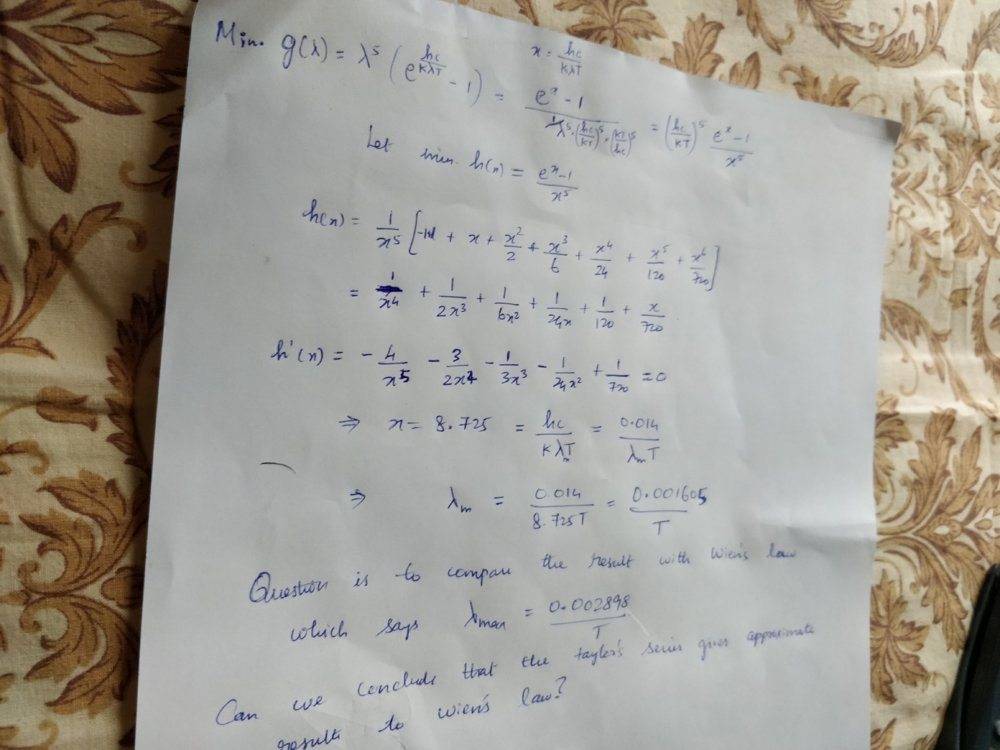 Min. g(λ) = λ⁵ (e^(hc/KλT) - 1) = (e^x - 1) / (1/λ⁵ · (hc/KT)⁵ × (KT/hc)⁵) = (hc/KT)⁵ (e^x - 1)/x⁵
x = hc/KλT
Let min. h(x) = (e^x - 1)/x⁵
h(x) = 1/x⁵ [ + x + x²/2 + x³/6 + x⁴/24 + x⁵/120 + x⁶/720 ]
= 1/x⁴ + 1/2x³ + 1/6x² + 1/24x + 1/120 + x/720
h'(x) = - 4/x⁵ - 3/2x⁴ - 1/3x³ - 1/24x² + 1/720 = 0
⇒ x = 8.725 = hc/KλₘT = 0.014/λₘT
⇒ λₘ = 0.014/8.725T = 0.001605/T
Question is to compare the result with Wien's law
which says λmax = 0.002898/T
Can we conclude that the taylor's series gives approximate
results to wien's law?